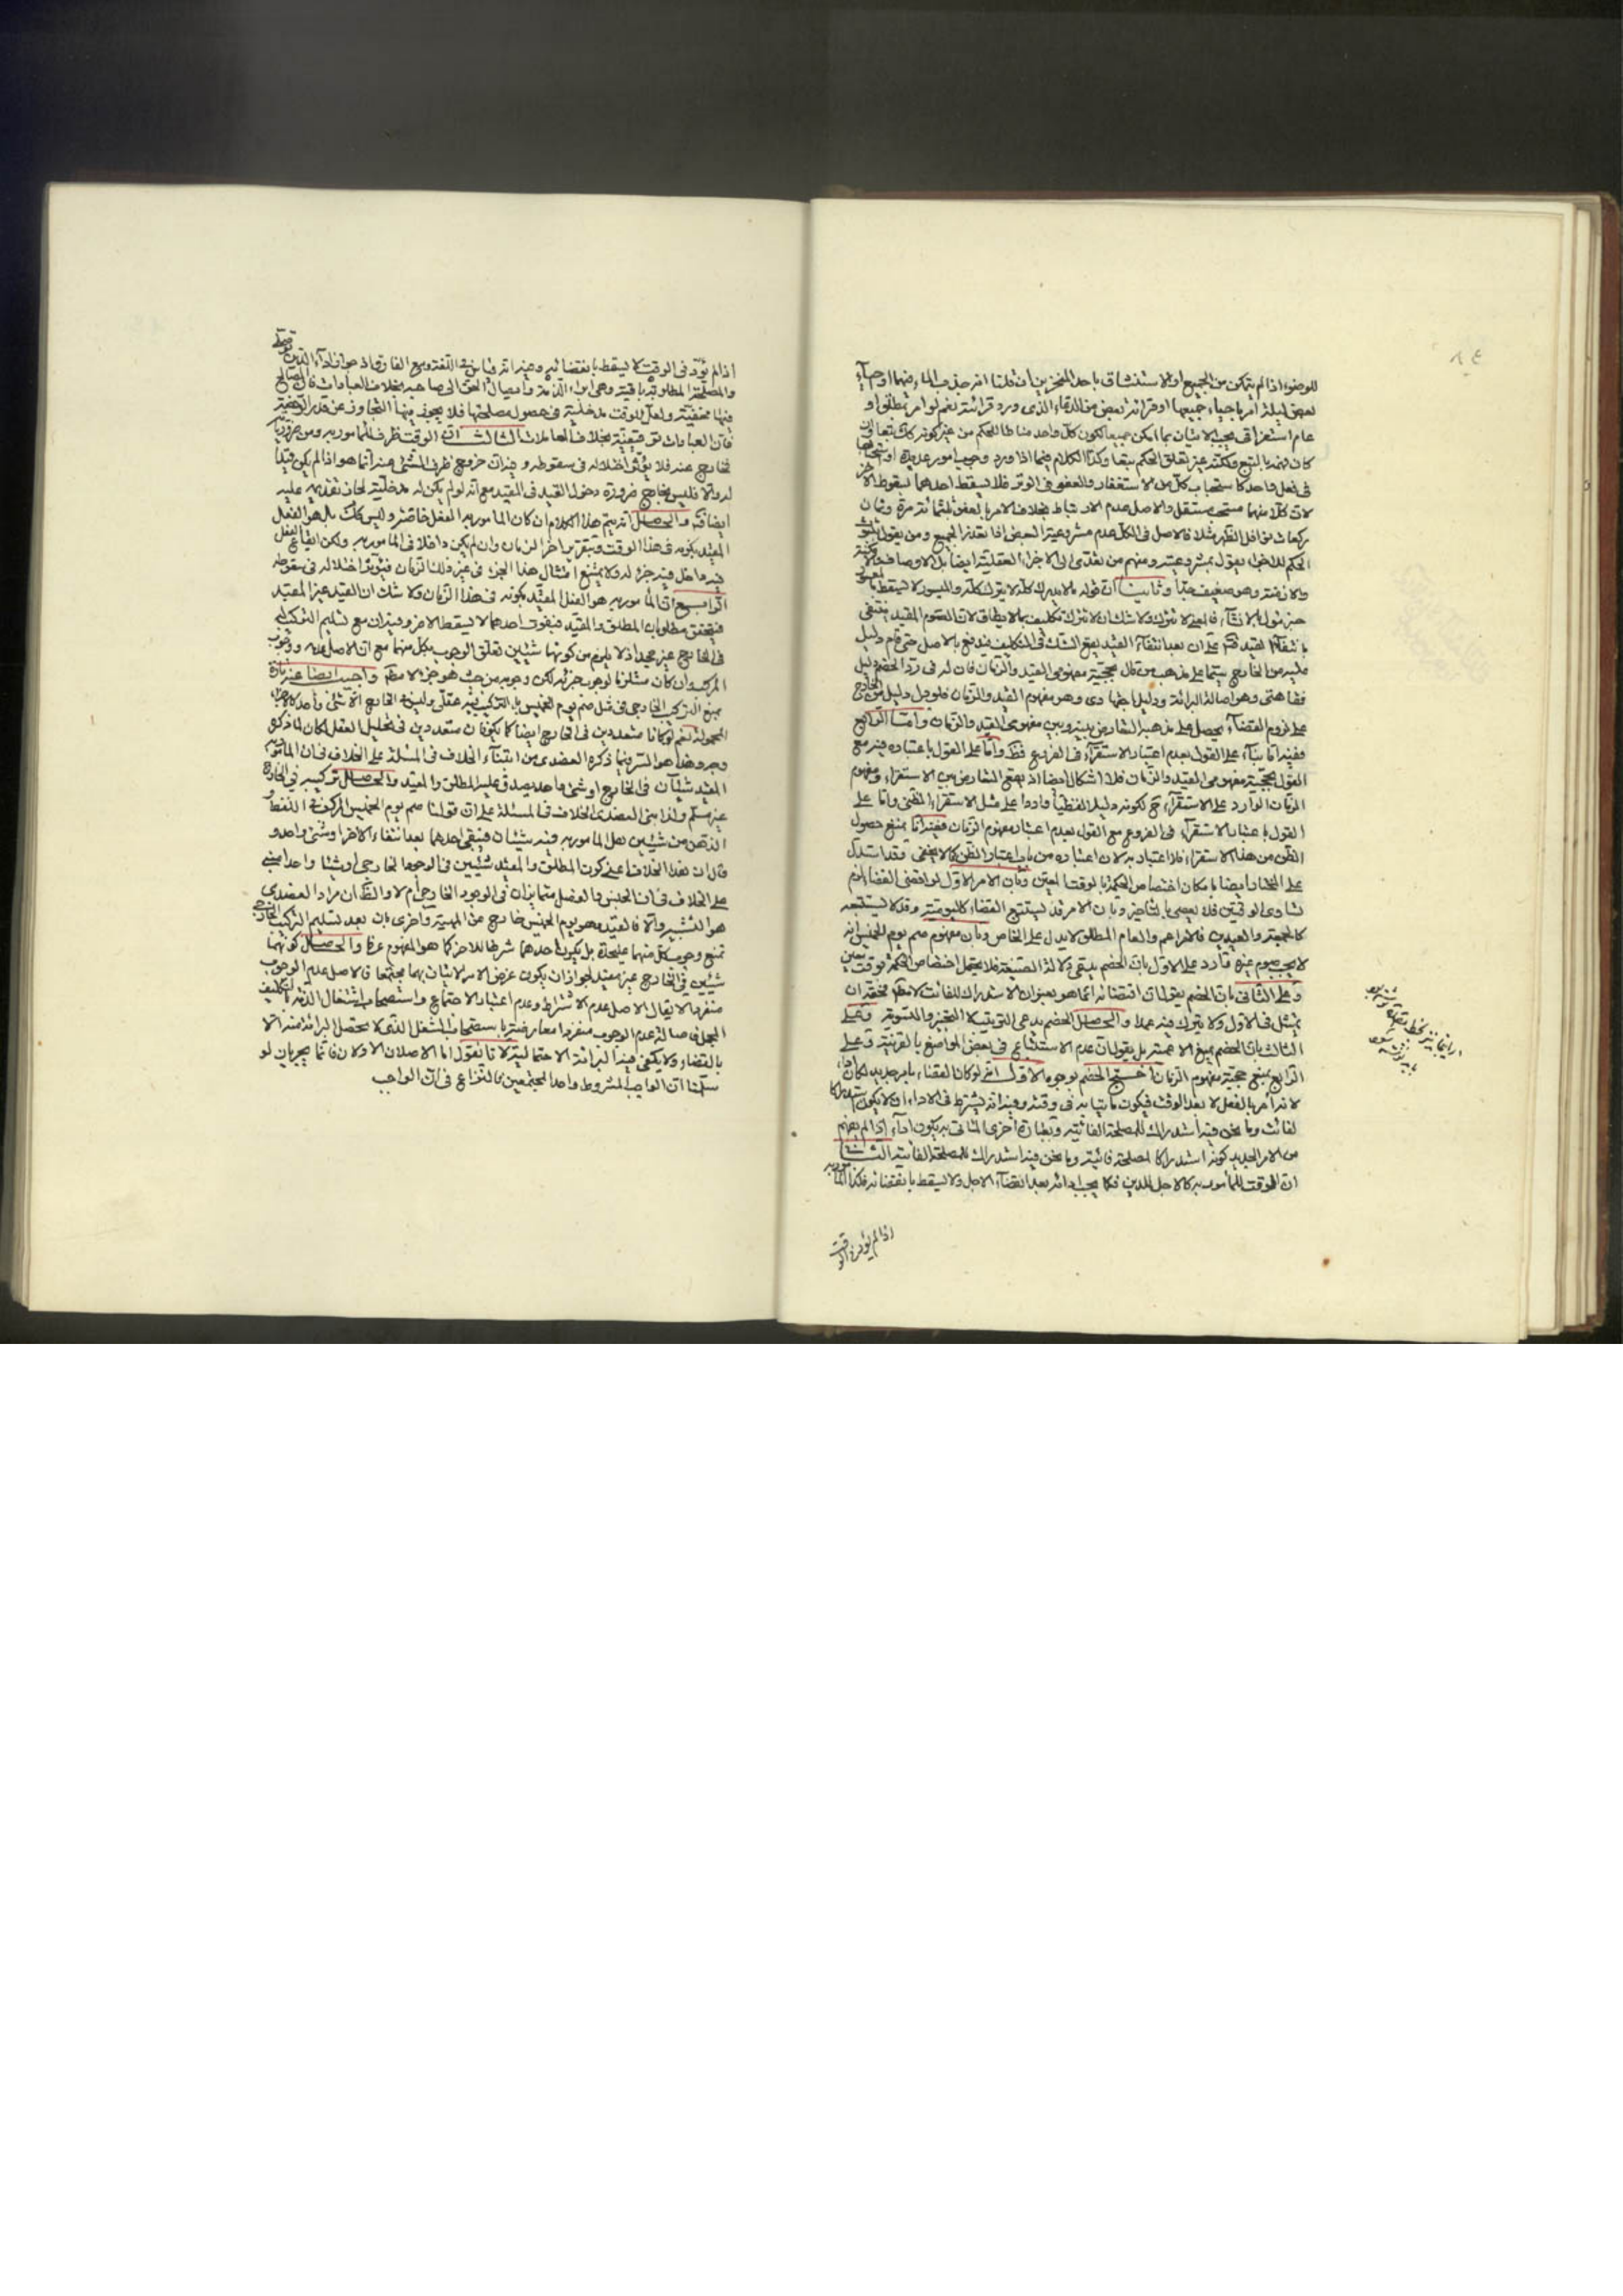 للوضوء اذا لم يتمكن من الجميع او الاستنشاق باحد المنخرين ان قلنا انه جذب الماء فيهما او احياء
بعض ليلة امر باحياء جميعها او قرائة بعض من الدعاء الذى ورد قرائته نعم لو امر بمطلق او
عام استغراقى يجب الاتيان بما امكن جميعا لكون كل واحد مناطا للحكم من غير كونه
كان فهمه بالتبع ولكنه غير تعلق الحكم بتعا وكذا الكلام فيما اذا ورد وجوب امور عديدة او استحبابها
فى فعل واحد كاستحباب كل من الاستغفار والعفو فى الوتر فلا يسقط احدهما لسقوط الاخر
لان كلا منهما مستحب مستقل والاصل عدم الارتباط بخلاف الامر بالعفو ثلثمائة مرة وثمان
ركعات نوافل الظهر مثلا فالاصل فى الكل عدم مشروعية البعض اذا تعذر الجميع ومن يقول بثبوت
الحكم للاجزاء يقول بمشروعيته ومنهم من تعدى الى الاجزاء العقلية ايضا بل الاوصاف
والازمنة وهو ضعيف جدا وثانيا ان قوله ما لا يدرك كله لا يترك كله والميسور لا يسقط بالمعسور
بانتفاء القيد على ان بعد انتفاء القيد يقع الشك فى التكليف فيدفع بالاصل حتى قام دليل
عليه من الخارج سيما على مذهب من قال بحجية مفهومى القيد والزمان فان له فى رد الخصم دليل
فقاهتى وهو اصالة البرائة ودليل اجتهادى وهو مفهوم القيد والزمان فلو دل دليل من الخارج
على لزوم القضاء يحصل على مذهبه التعارض بينه وبين مفهومى القيد والزمان واما الرابع
ففيه اما بناء على القول بعدم اعتبار الاستقراء فى الفروع واما على القول باعتباره فيه مع
القول بحجية مفهومى القيد والزمان فلا اشكال ايضا اذ يقع التعارض بين الاستقراء ومفهوم
الزمان الوارد على الاستقراء لكونه دليلا لفظيا واردا على مثل الاستقراء الظنى واما على
القول باعتبار الاستقراء فى الفروع مع القول بعدم اعتبار مفهوم الزمان ففيه انا نمنع حصول
الظن من هذا الاستقراء فلا اعتبار به لان اعتباره من باب اعتبار الظن كما لا يخفى وقد استدل
على المختار ايضا بامكان اختصاص الحكمة بالوقت المعين وبان الامر الاول لو اقتضى القضاء لزم
تساوى الوقتين فلا يعصى بالتاخير وبان الامر قد يستتبع القضاء كاليومية وقد لا يستتبعه
كالجمعة والعيدين فالامر اعم والعام المطلق لا يدل على الخاص وبان مفهوم صم يوم الخميس انه
لا يجب صوم غيره واورد على الاول بان الخصم يدعى دلالة الصيغة فلا يحتمل اختصاص الحكمة بوقت معين
وعلى الثانى بان الخصم يقول ان اقتضائه انما هو بعنوان الاستدراك للفائت
يمتثل فى الاول ولا يترك فيه عمدا والحاصل الخصم يدعى الترتيب لا التخيير والتسوية وعلى
الثالث بان الخصم يمنع الاعمية بل يقول ان عدم الاستتباع فى بعض المواضع بالقرينة وعلى
الرابع بمنع حجية مفهوم الزمان احتج الخصم بوجوه الاول انه لو كان القضاء بامر جديد لكان اداء
لانه امر بالفعل لا بعد الوقت فيكون ماتيا به فى وقته وفيه انه يشترط فى الاداء ان لا يكون استدراكا
لفائت وما نحن فيه استدراك للمصلحة الفائتة وبعبارة اخرى الماتى به يكون اداء اذا لم يفهم
من الامر الجديد كونه استدراكا لمصلحة فائتة وما نحن فيه استدراك للمصلحة الفائتة الثانى
ان الوقت للمامور به كالاجل للدين فكما يجب ادائه بعد انقضاء الاجل ولا يسقط بانقضائه فكذا المامور به
اذا لم يؤد فى الوقت
اذا لم يؤد فى الوقت لا يسقط بانقضائه وفيه انه قياس فى اللغة ومع الفارق اذ
والمصلحة المطلوبة باقية وهى ابراء الذمة وايصال الحق الى صاحبه بخلاف العبادات فان المصالح
فيها مخفية ولعل للوقت مدخلية فى حصول مصلحتها فلا يجوز فيها التجاوز عن قدر
فان العبادات توقيفية بخلاف المعاملات الثالث ان الوقت ظرف للمامور به ومن ضروريا
لخارج عنه فلا يؤثر اختلاله فى سقوطه وفيه ان خروج ظرف الشئ عنه انما هو اذا لم يكن قيدا
له والا فليس بخارج ضرورة دخول القيد فى المقيد مع انه لو لم يكن له مدخلية لجاز تقديمه عليه
ايضا والحاصل انه يتم هذا الكلام ان كان المامور به الفعل خاصة وليس كك بل هو الفعل
المقيد بكونه فى هذا الوقت وبتقرير اخر الزمان وان لم يكن داخلا فى المامور به ولكن ايقاع الفعل
فيه داخل فيه جزء له ولا يمتنع امتثال هذا الجزء فى غير ذلك الزمان فيؤثر اختلاله فى سقوطه
الرابع ان المامور به هو الفعل المقيد بكونه فى هذا الزمان ولا شك ان القيد غير المقيد
فيتحقق مطلوبان المطلق والمقيد فبفوت احدهما لا يسقط الاخر وفيه ان مع تسليم التركيب
فى الخارج غير مجد اذ لا يلزم من كونهما شيئين تعلق الوجوب بكل منهما مع ان الاصل عدمه ووجوب
المركب وان كان مستلزما لوجوب جزئه لكن وجوبه من حيث هو جزء لا مطلقا واجيب ايضا عنه تارة
بمنع التركيب الخارجى فى مثل صم يوم الخميس بل التركيب فيه عقلى وليس فى الخارج الا شئ واحد كالاجزاء
المحمولة نعم لو كانا متعددين فى الخارج ايضا كما يكونان متعددين فى تحليل العقل لكان لما ذكره
وجه وهذا هو السر فيما ذكره العضدى من ابتناء الخلاف فى المسئلة على الخلاف فى ان
المقيد شيئان فى الخارج او شئ واحد يصدق عليه المطلق والمقيد والحاصل تركيبه فى الخارج
غير مسلم ولذا بنى العضدى الخلاف فى المسئلة على ان قولنا صم يوم الخميس المركب فى اللفظ و
الذهن من شيئين هل المامور به فيه شيئان فيبقى احدهما بعد انتفاء الاخر او شئ واحد و
قال ان هذا الخلاف اعنى كون المطلق والمقيد شيئين فى الوجود الخارجى او شيئا واحدا مبنى
على الخلاف فى ان الجنس والفصل متمايزان فى الوجود الخارجى ام لا والظ ان مراد العضدى
هو التشبيه والا فالقيد وهو يوم الخميس خارج عن المهية واخرى بان بعد تسليم التركيب الخارجى
نمنع وجوب كل منهما عليحدة بل يكون احدهما شرطا للاخر كما هو المفهوم عرفا والحاصل كونهما
شيئين فى الخارج غير مفيد لجواز ان يكون غرض الامر الاتيان بهما مجتمعا فالاصل عدم الوجوب
منفردا لا يقال الاصل عدم الاشتراط وعدم اعتبار الاجتماع واستصحاب اشتغال الذمة بالتكليف
المجمل فاصالة عدم الوجوب منفردا معارضة باستصحاب الشغل الذى لا يحصل البرائة منه الا
بالقضاء ولا يكفى فيه البرائة الاحتمالية لانا نقول اما الاصلان الاولان فانما يجريان لو
سلمنا ان الواجب المشروط واحد المجتمعين مما النزاع فى ان الواجب